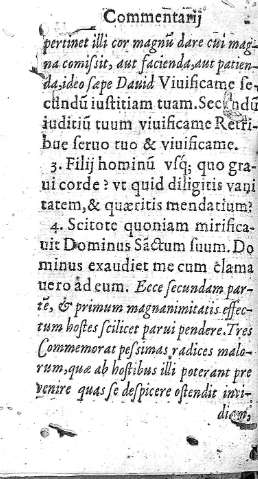 Commentarij
pertinet illi cor magnũ dare cui mag-
na comisit, aut facienda, aut patien-
da, ideo sæpe Dauid Viuificame se-
cũndũ iustitiam tuam. Secũndũ
iuditiũ tuum viuificame Retri-
bue seruo tuo & viuificame.
3. Filij hominũ vsq; quo gra-
ui corde? vt quid diligitis vani
tatem, & quæritis mendatium?
4. Scitote quoniam mirifica-
uit Dominus Sãctum suum. Do
minus exaudiet me cum clama
uero ad eum. Ecce secundam par-
tẽ, & primum magnanimitatis effec-
tum hostes scilicet parui pendere. Tres
Commemorat pessimas radices malo-
rum, quæ ab hostibus illi poterant pre
venire quas se despicere ostendit invi-
diam,